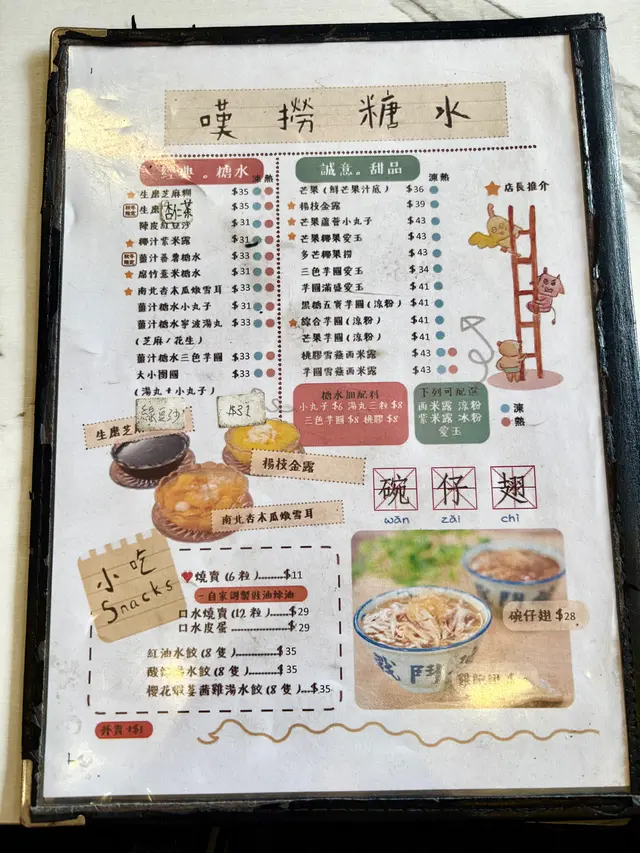 嘆撈糖水
經典。糖水
凍 熱
生磨芝麻糊 $35
生磨杏仁茶 $35
陳皮紅豆沙 $31
椰汁紫米露 $31
秋冬限定 薑汁番薯糖水 $33
腐竹薏米糖水 $31
南北杏木瓜燉雪耳 $33
薑汁糖水小丸子 $31
薑汁糖水寧波湯丸 $33
(芝麻/花生)
薑汁糖水三色芋圓 $33
大小團圓 $33
(湯丸+小丸子)
綠豆沙 $31
誠意。甜品
凍 熱
芒果(鮮芒果汁底) $36
楊枝金露 $39
芒果蘆薈小丸子 $43
芒果椰果愛玉 $43
多芒椰果撈 $43
三色芋圓愛玉 $34
芋圓滿盛愛玉 $41
黑糖五寶芋圓(涼粉) $41
綜合芋圓(涼粉) $41
芒果芋圓(涼粉) $41
桃膠雪燕西米露 $43
芋圓雪燕西米露 $43
店長推介
糖水加配料
小丸子 $6 湯丸三粒 $8
三色芋圓 $8 桃膠 $8
下列可配選
西米露 涼粉
紫米露 冰粉
愛玉
凍
熱
生磨芝
楊枝金露
南北杏木瓜燉雪耳
碗仔翅
wǎn zǎi chì
小吃
Snacks
燒賣(6粒)........$11
自家調製豉油辣油
口水燒賣(12粒)......$29
口水皮蛋 ................$29
紅油水餃(8隻)...........$35
水餃(8隻)............$35
櫻花蝦荃茜雞湯水餃(8隻)...$35
碗仔翅 $28
外賣+$1